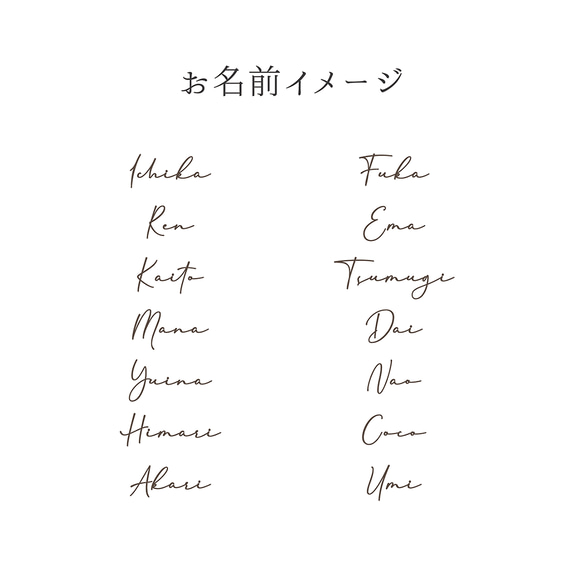 お名前イメージ
Ichika
Ren
Kaito
Mana
Yuina
Himari
Akari
Fuka
Ema
Tsumugi
Dai
Nao
Coco
Umi